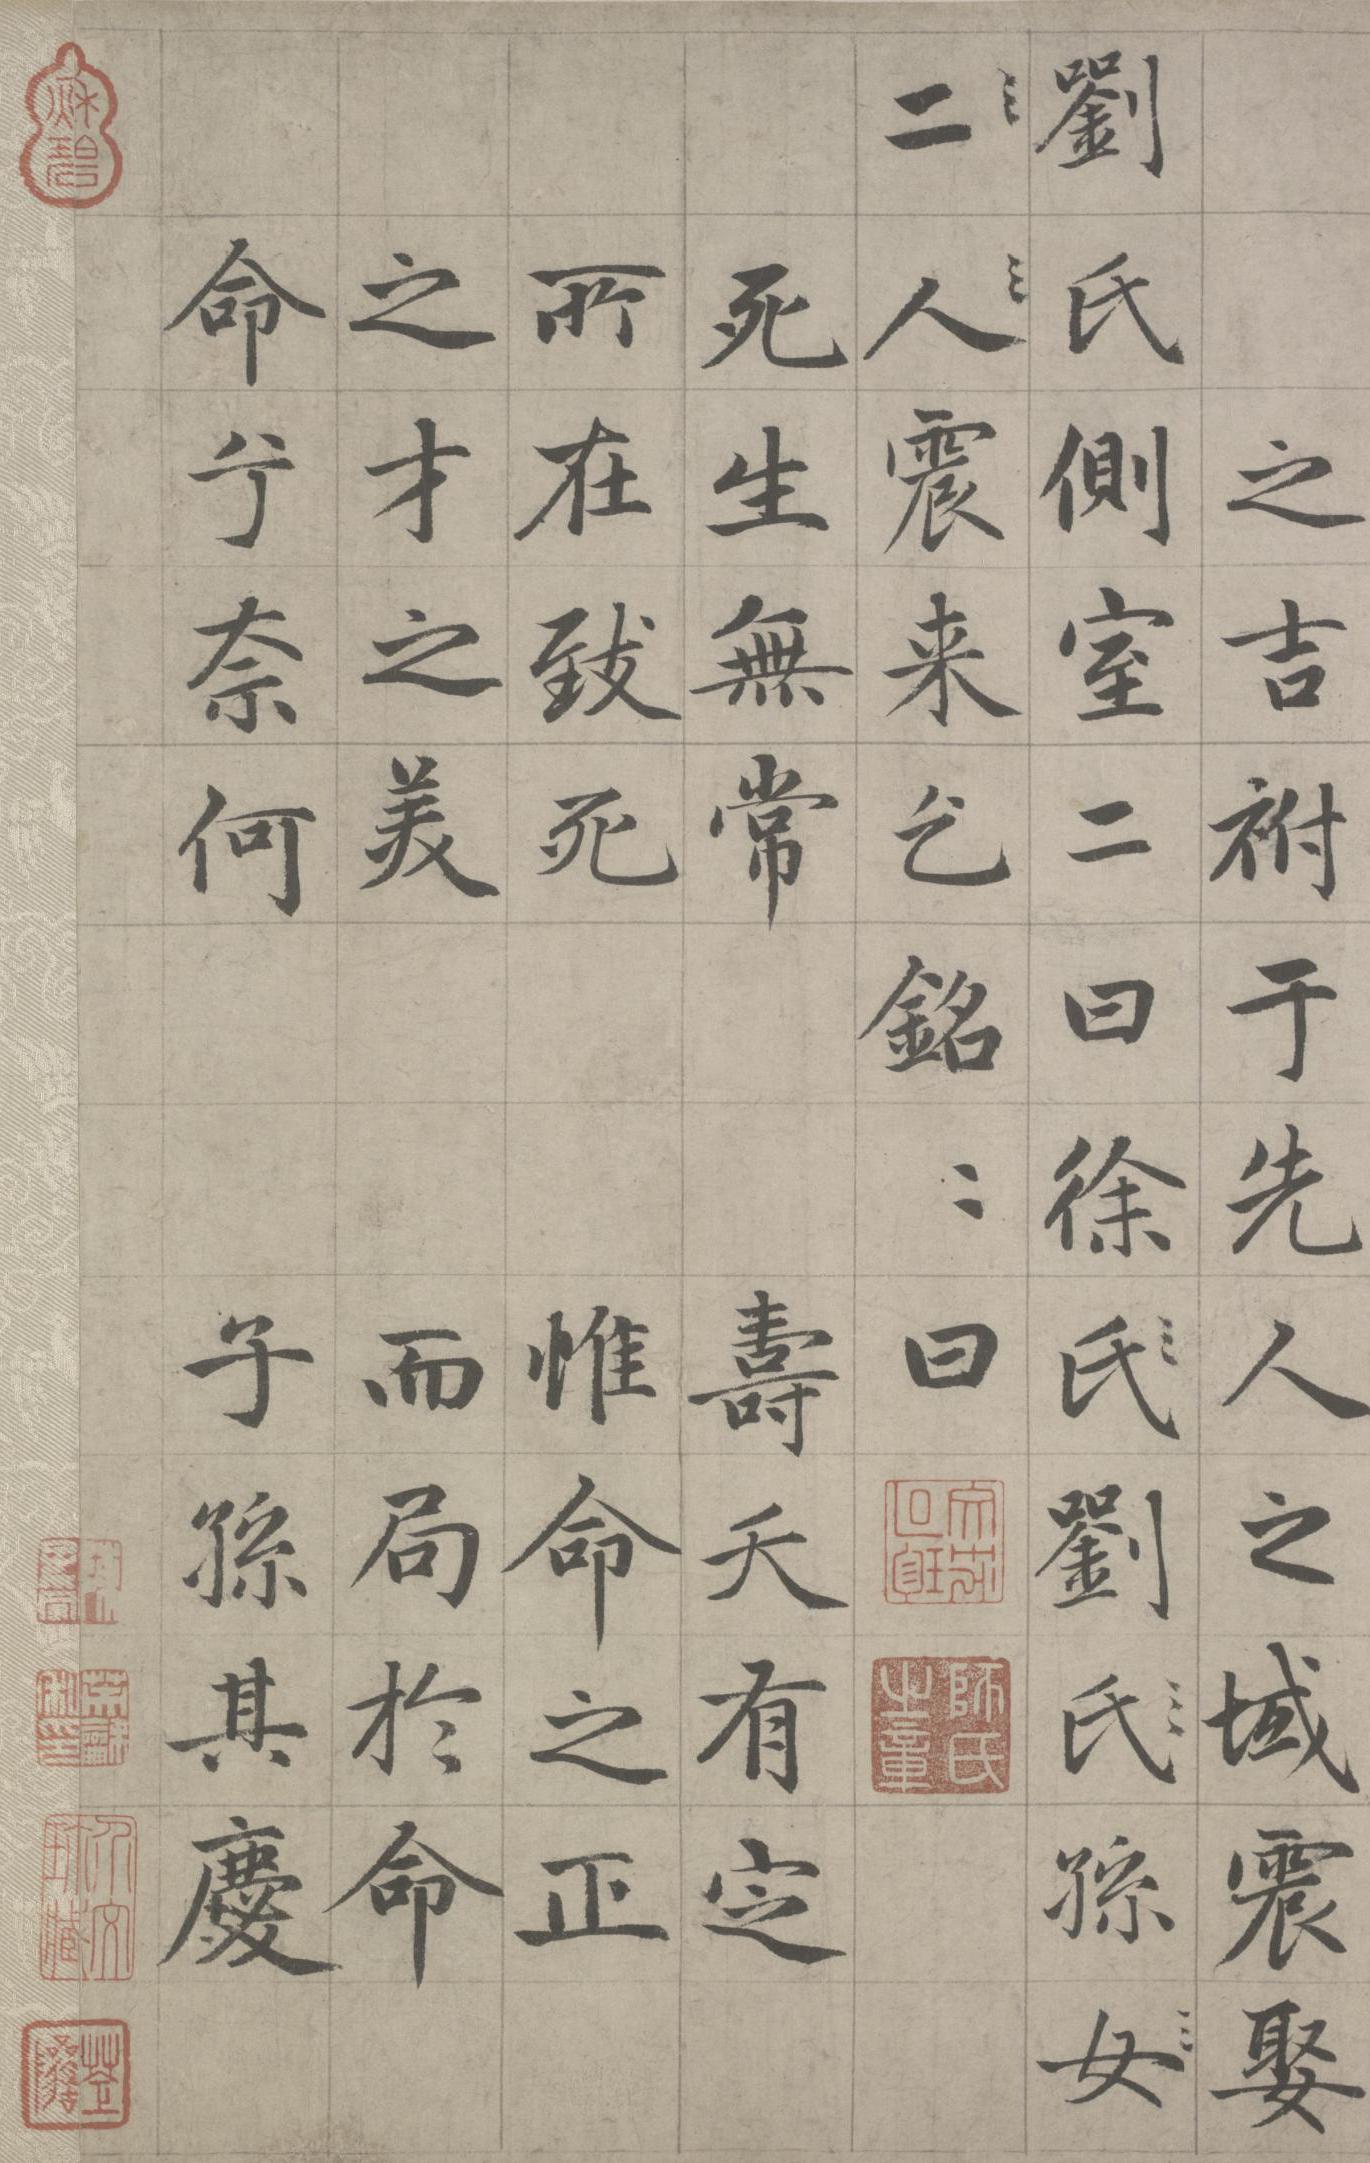 之吉祔于先人之域震娶
劉氏側室二曰徐氏劉氏孫女
二人震来乞銘〻曰
死生無常　壽夭有定
所在致死　惟命之正
之才之美　而局於命
命兮奈何　子孫其慶
師氏之章